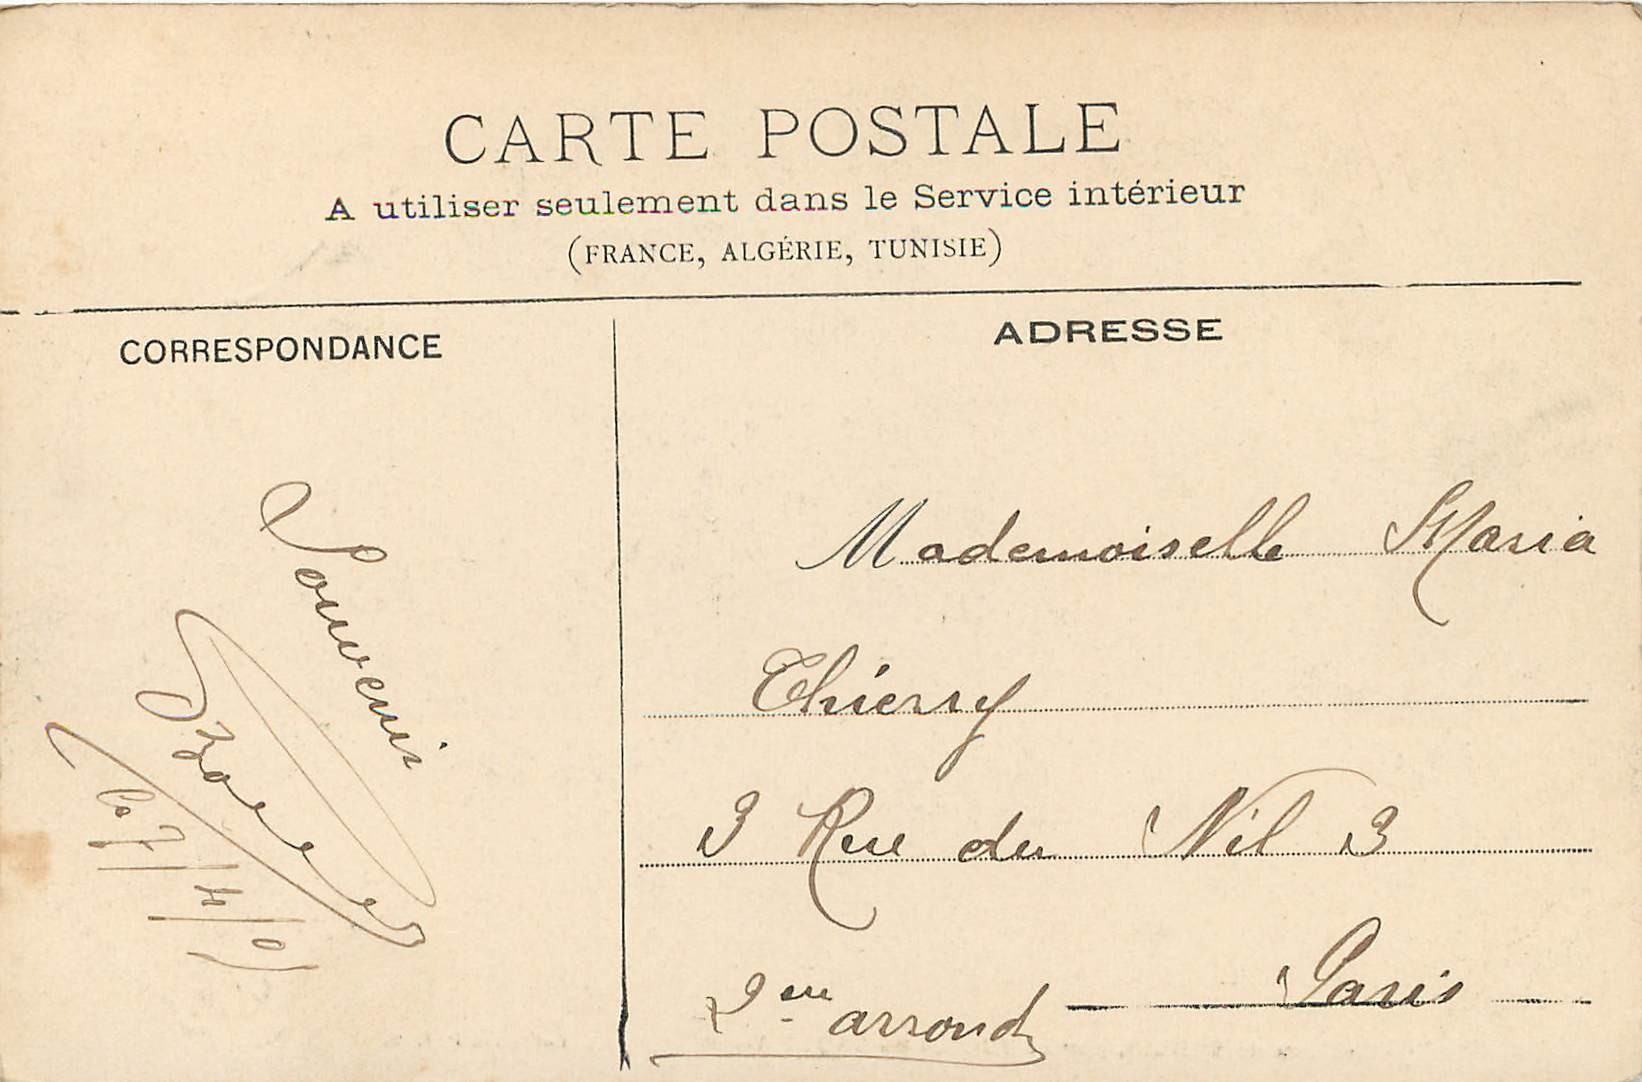 CARTE POSTALE
A utiliser seulement dans le Service intérieur
(FRANCE, ALGÉRIE, TUNISIE)
CORRESPONDANCE
ADRESSE
Souvenir
7/4/
Mademoiselle Maria
Thierry
3 Rue du Nil 3
Paris
2eme arrond